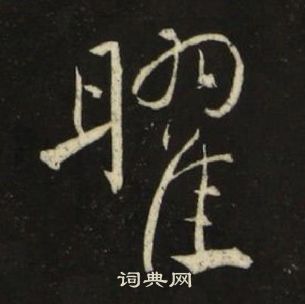 曜
词典网